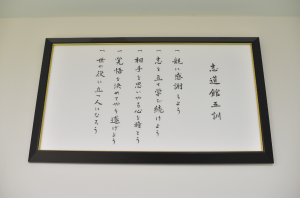 志道館五訓
一 親に感謝しよう
一 志を立て学び続けよう
一 相手を思いやる心を持とう
一 覚悟を決めてやり遂げよう
一 世の役に立つ人になろう